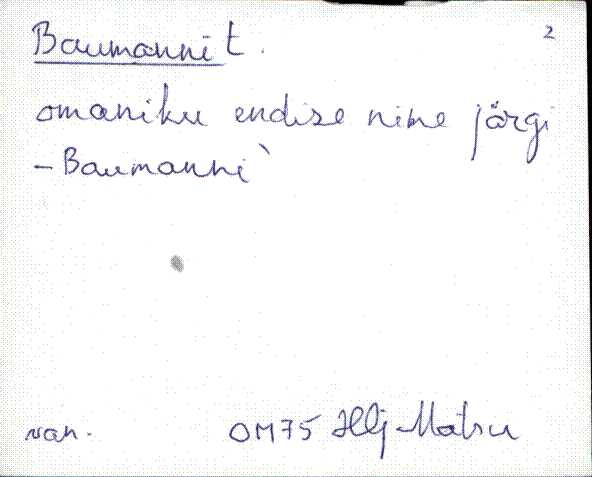 Baumanni t. 2
omaniku endise nime järgi
– Baumanni
van. OM75 Hlj-Matsu